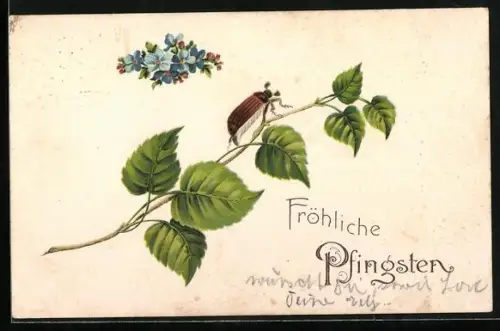 Fröhliche
Pfingsten
wünscht Dir
Deine